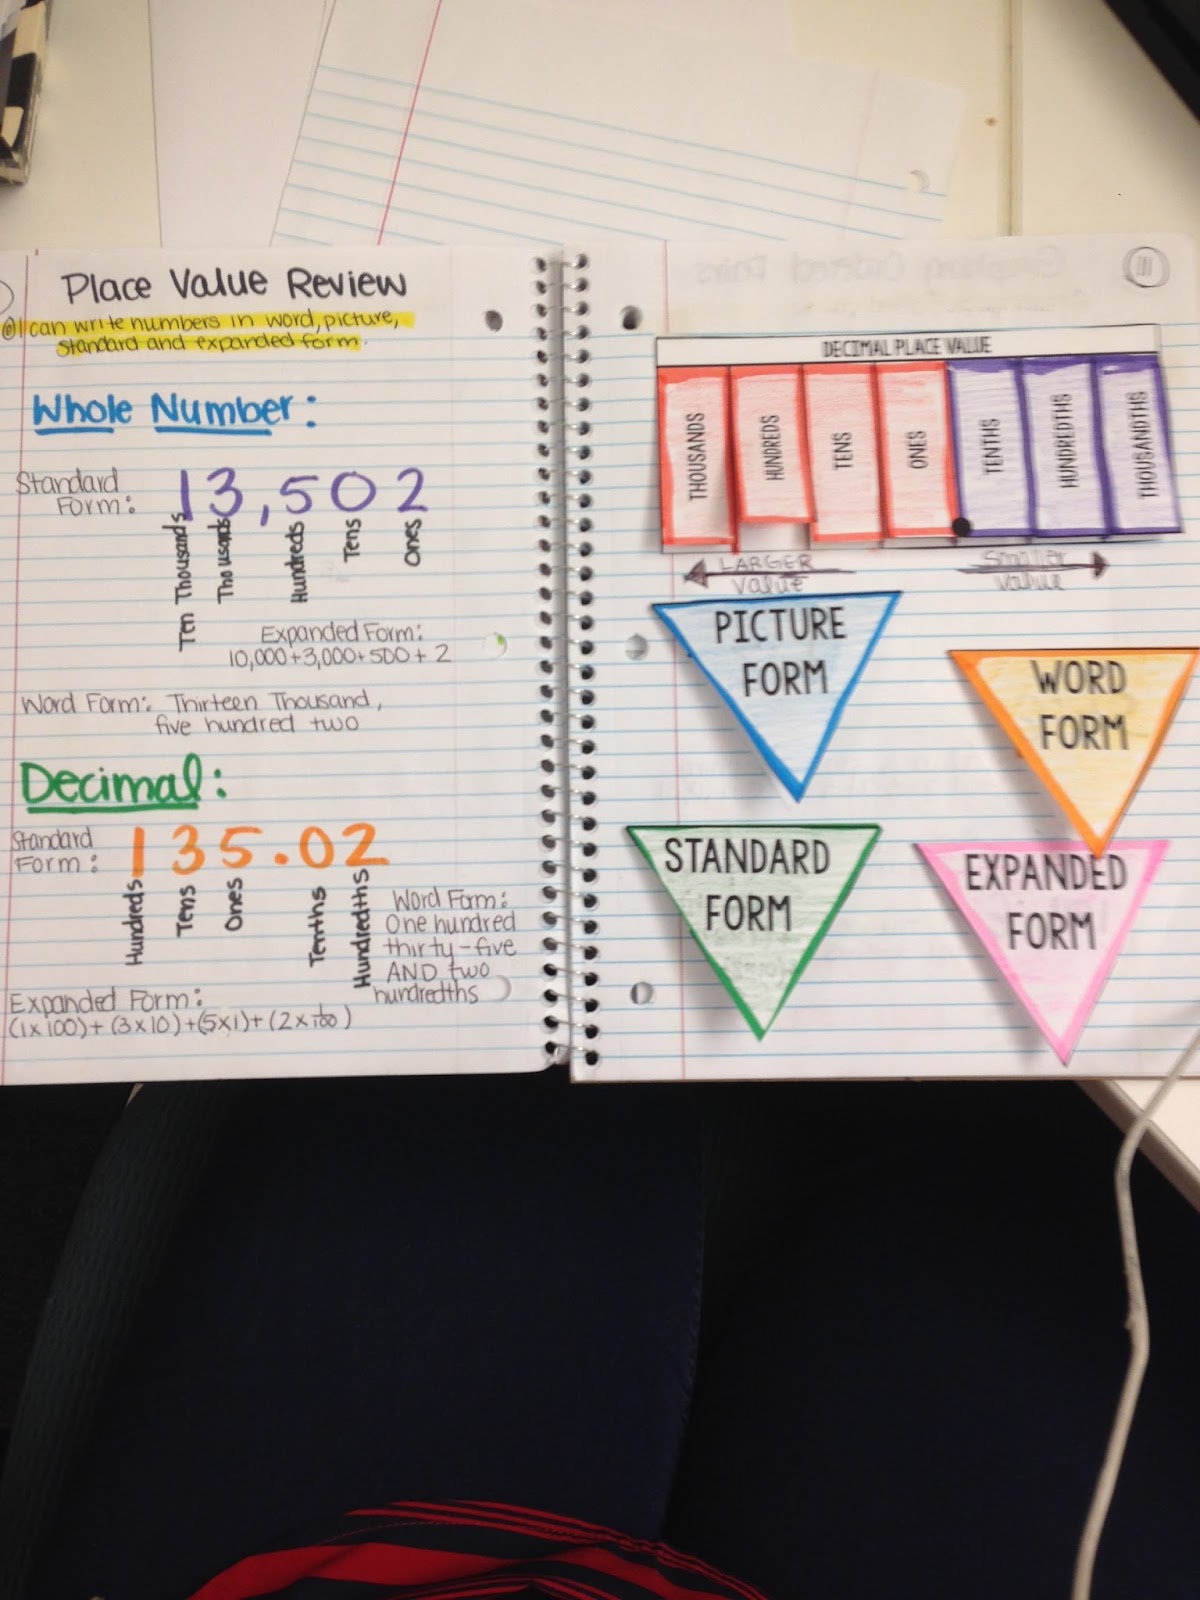 Place Value Review
I can write numbers in word, picture,
standard and expanded form.
Whole Number:
Standard
Form:
13,502
Ten Thousands
Thousands
Hundreds
Tens
Ones
Expanded Form:
10,000+3,000+500+2
Word Form: Thirteen Thousand,
five hundred two
Decimal:
Standard
Form:
135.02
Hundreds
Tens
Ones
Tenths
Hundredths
Word Form:
One hundred
thirty-five
AND two
hundredths
Expanded Form:
(1x100)+(3x10)+(5x1)+(2x1/100)
111
DECIMAL PLACE VALUE
THOUSANDS
HUNDREDS
TENS
ONES
TENTHS
HUNDREDTHS
THOUSANDTHS
LARGER
Value
Smaller
Value
PICTURE
FORM
WORD
FORM
STANDARD
FORM
EXPANDED
FORM